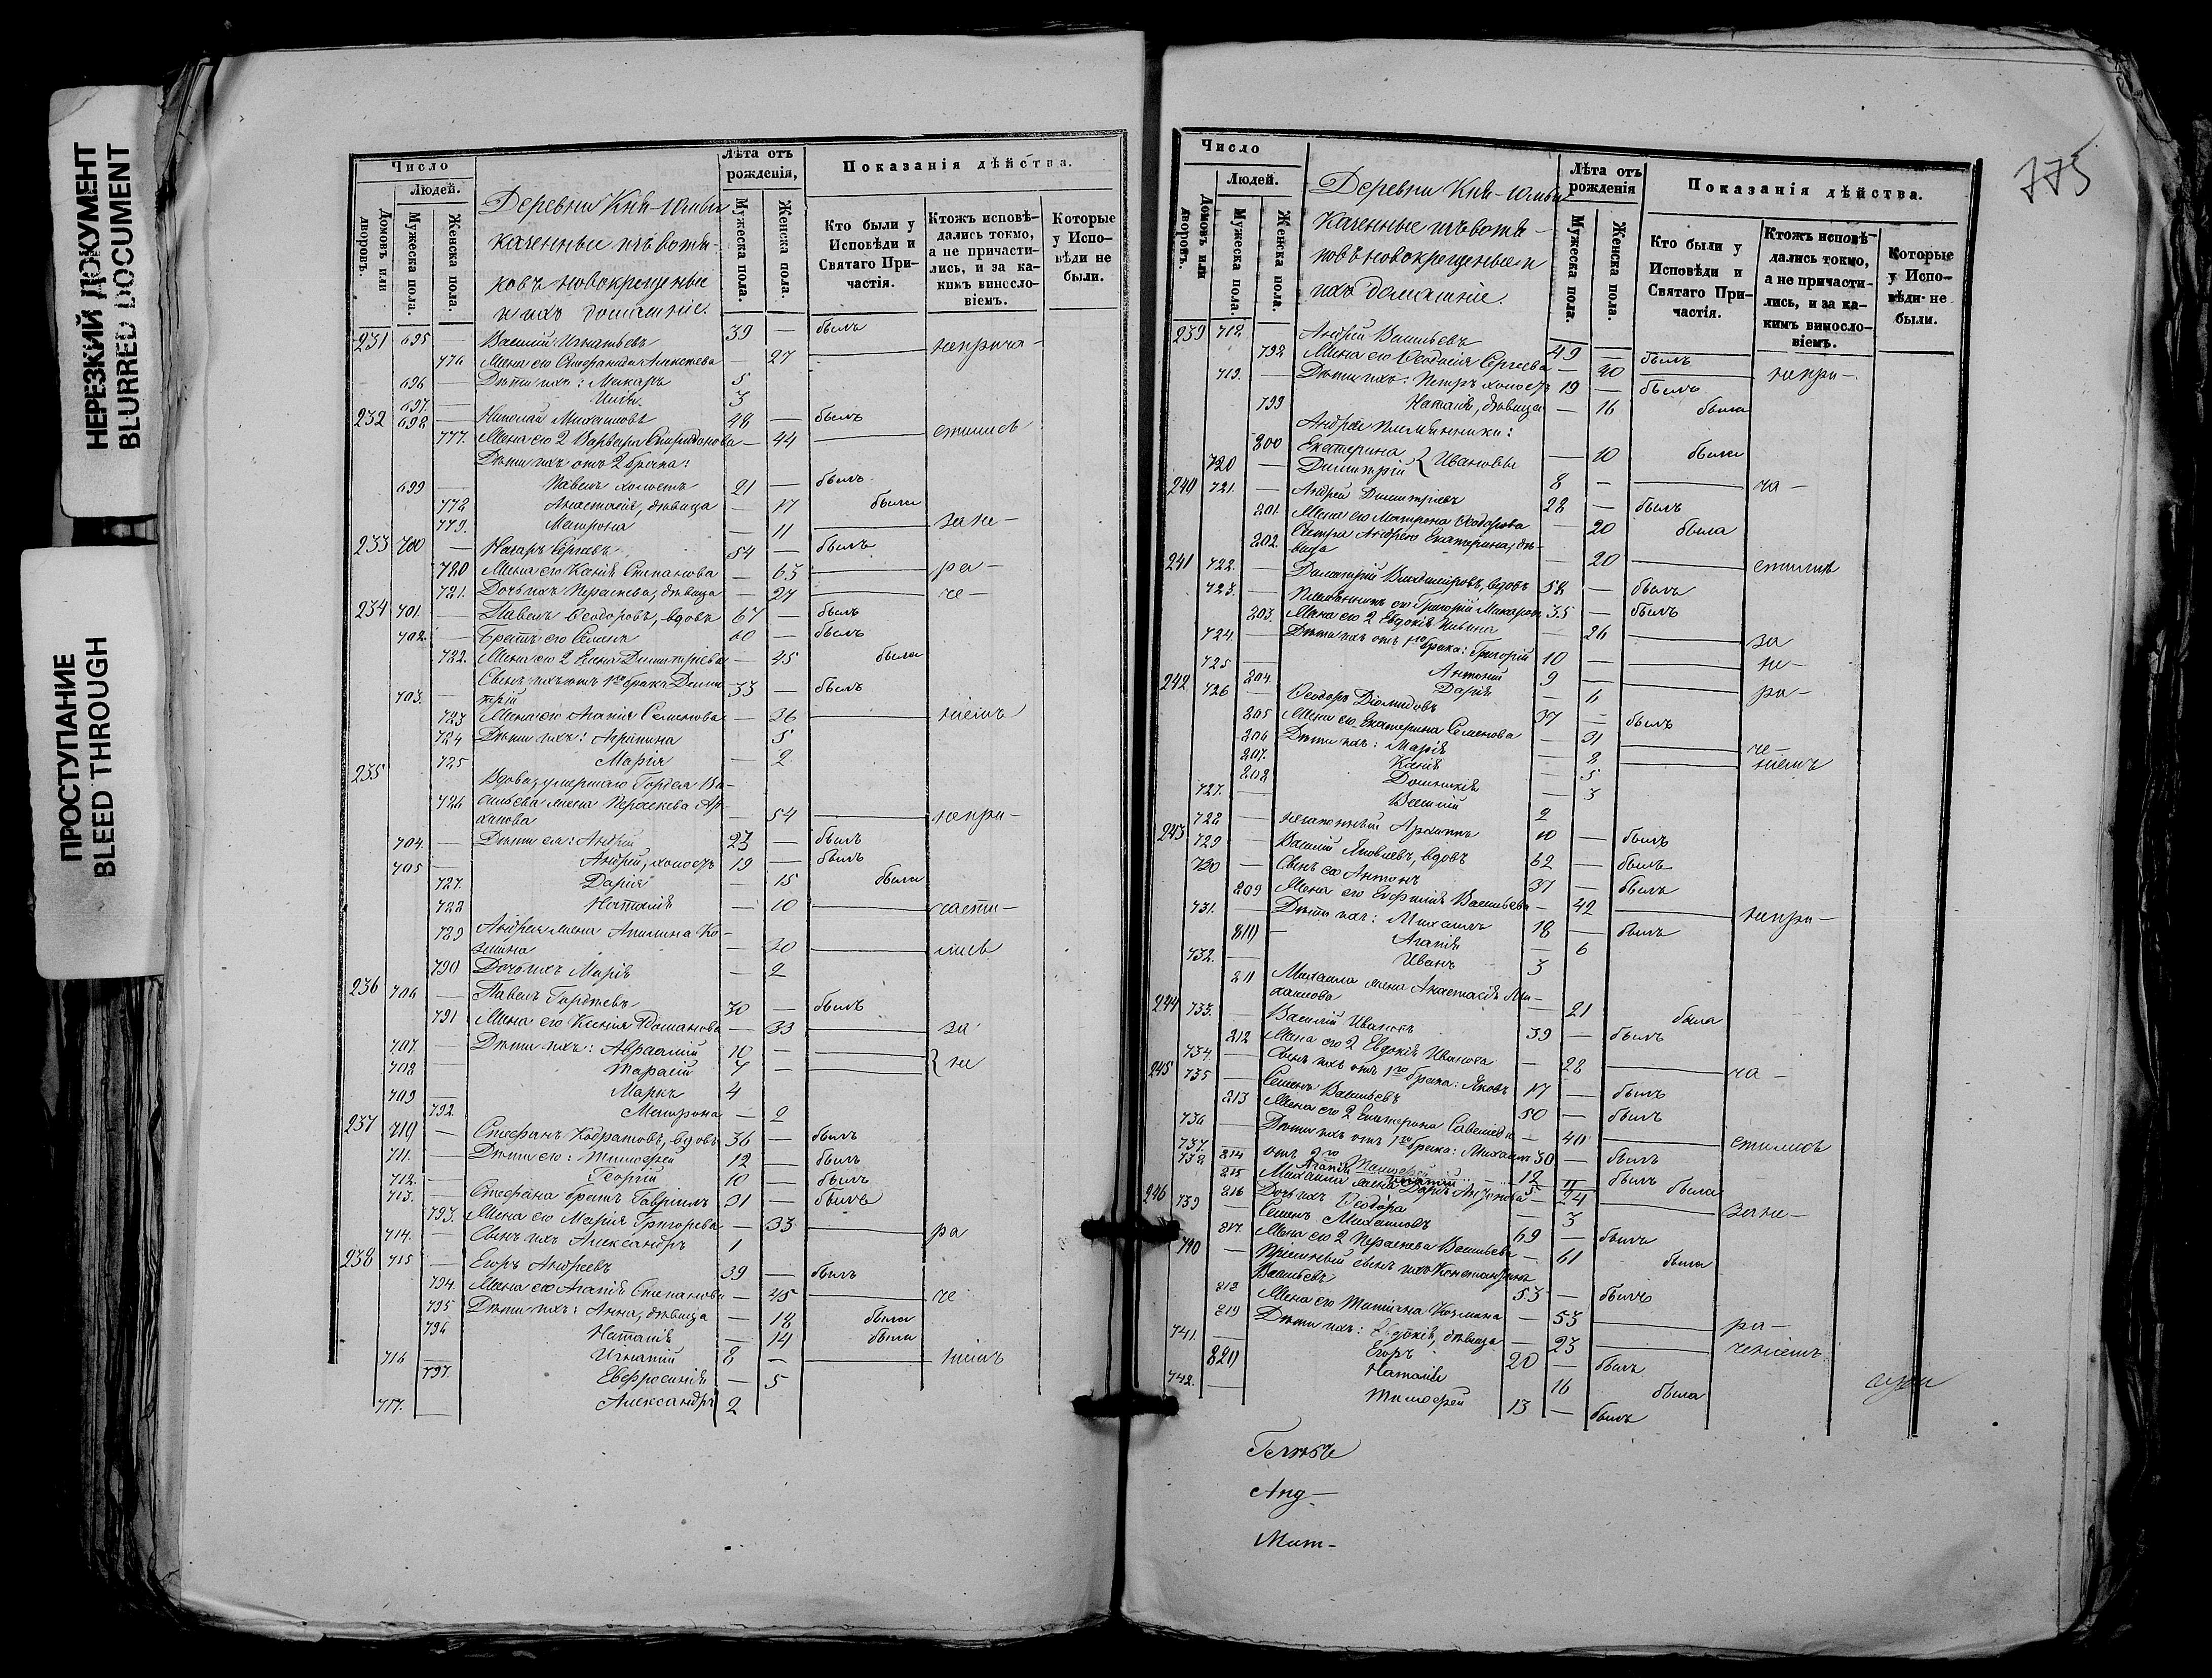 НЕРЕЗКИЙ ДОКУМЕНТ
BLURRED DOCUMENT
ПРОСТУПАНИЕ
BLEED THROUGH
Число
Людей.
Домовъ или дворовъ.
Мужеска пола.
Женска пола.
Деревни
новокрещеные
и ихъ домашніе.
Лѣта отъ рожденія,
Мужеска пола.
Женска пола.
Показанія дѣйства.
Кто были у Исповѣди и Святаго Причастія.
Ктожъ исповѣдались токмо, а не причастились, и за какимъ винословіемъ.
Которые у Исповѣди не были.
231 695 — Василій Игнатьевъ 39 — былъ
776 Жена его Стефанида Алексѣева — 27 — неприча-
696 — Дѣти ихъ: Макаръ 5
697. — Илья 3
232 698 — Николай Михаиловъ 48 — былъ
777. Жена его 2 Варвара Спиридонова — 44 — стились
Дѣти ихъ отъ 2 брака:
699 — Павелъ холостъ 21 — былъ
778 Анастасія, дѣвица — 17 была
779. Матрона — 11 — за не-
233 700 — Назаръ Сергѣевъ 54 — былъ
780 Жена его Ксенія Степанова — 63 — ра-
781. Дочь ихъ Параскева, дѣвица — 27 — че-
234 701. — Павелъ Ѳеодоровъ, вдовъ 67 — былъ
702. — Братъ его Семенъ 60 — былъ
782. Жена его 2 Елена Димитріева — 45 была
703. — Сынъ ихъ отъ 1го брака Дими
трій 33 — былъ
783 Жена его Агапія Семенова — 36 — ніемъ
784 Дѣти ихъ: Агрипина — 5
785 Марія — 2
235 Вдова, умершаго Гордея Ва-
786 сильева жена Параскева Ар-
хипова — 54 — непри-
704. — Дѣти ея: Андрей 23 — былъ
705 — Андрей, холостъ 19 — былъ
787. Дарія — 15 была
788 Наталія — 10 — части-
789 Андрея жена Акилина Ко-
зьмина — 20 — лись
790 Дочь ихъ Марія — 2
236 706 — Павелъ Гордеевъ 30 — былъ
791 Жена его Ксенія Романова — 33 — за
707. — Дѣти ихъ: Авраамій 10 —
708 — Тарасій 7 — не
709 — Маркъ 4
792 Матрона — 2
237 710 — Стефанъ Кодратовъ, вдовъ 36 — былъ
711. — Дѣти его: Тимофей 12 — былъ
712. — Георгій 10 — былъ
713. — Стефана братъ Гавріилъ 31 — былъ
793. Жена его Марія Григорьева — 33 — ра
714. — Сынъ ихъ Александръ 1
238 715 — Егоръ Андреевъ 39 — былъ
794. Жена его Агапія Степанова — 45 — че
795 Дѣти ихъ: Анна, дѣвица — 18 была
796 Наталія — 14 была
716 — Игнатій 8 — ніемъ
797. Евфросинія — 5
717. — Александръ 2
775
Число
Людей.
Домовъ или дворовъ.
Мужеска пола.
Женска пола.
Деревни
новокрещеные и
ихъ домашніе.
Лѣта отъ рожденія
Мужеска пола.
Женска пола.
Показанія дѣйства.
Кто были у Исповѣди и Святаго Причастія.
Ктожъ исповѣдались токмо, а не причастились, и за какимъ винословіемъ.
Которые у Исповѣди не были.
239 718. — Андрей Васильевъ 49 — былъ
798 Жена его Ѳеодосія Сергѣева — 40 — непри-
719. — Дѣти ихъ: Петръ холостъ 19 — былъ
799 Наталія, дѣвица — 16 была
Андрея племянники:
800 Екатерина } Ивановы — 10 была
720 — Димитрій 8 — ча-
240 721. — Андрей Димитріевъ 28 — былъ
801. Жена его Матрона Ѳеодорова — 20 была
802. Сестра Андрея Екатерина, дѣ-
вица — 20 — стились
241 722. — Владимировъ, вдовъ 58 — былъ
723. — Племянникъ его Григорій Макаровъ 35 — былъ
803. Жена его 2 Евдокія — 26 — за
724 — Дѣти ихъ отъ 1го брака: Григорій 10 — не-
725 — Антоній 9 — ра-
804. Дарія — 6
242 726 — Ѳеодоръ Діомидовъ 37 — былъ
805 Жена его Екатерина Семенова — 31 — че-
806 Дѣти ихъ: Марія — 8 — ніемъ
807. Ксенія — 5
808 Домникія — 3
727. — Василій 2
728 — 10 — былъ
243 729 — Василій Яковлевъ, вдовъ 62 — былъ
730 — Сынъ его Антонъ 37 — былъ
809 Жена его Евфимія Васильева — 42 — непри-
731. — Дѣти ихъ: Михаилъ 18 — былъ
810 Агапія — 6
732. — Иванъ 3
811 Михаила жена Анастасія Ми-
хаилова — 21 была
244 733. — Василій Ивановъ 39 — былъ
812 Жена его 2 Евдокія Иванова — 28 — ча-
734. — Сынъ ихъ отъ 1го брака: Яковъ 17 — былъ
245 735 — Семенъ Васильевъ 50 — былъ
813 Жена его 2 Екатерина Савельева — 40 — стились
736 — Дѣти ихъ отъ 1го брака: Михаилъ 30 — былъ
737. отъ 2го Тимофей 12 былъ
738 814 Агапія 5 11 была
815 Михаила жена Дарія Антонова — 24 — за не-
816 Дочь ихъ Ѳеодора — 3
246 739 — Семенъ Михаиловъ 69 — былъ
817. Жена его 2 Параскева Васильева — 61 была
740 — Пріемный сынъ ихъ Константинъ
Васильевъ 53 — былъ
818 Жена его Татіана Козьмина — 53 — ра-
819 Дѣти ихъ: Евдокія, дѣвица — 23 — ченіемъ
741. — Егоръ 20 — былъ
820 Наталія 16 была
742. — Тимофей 13 — былъ